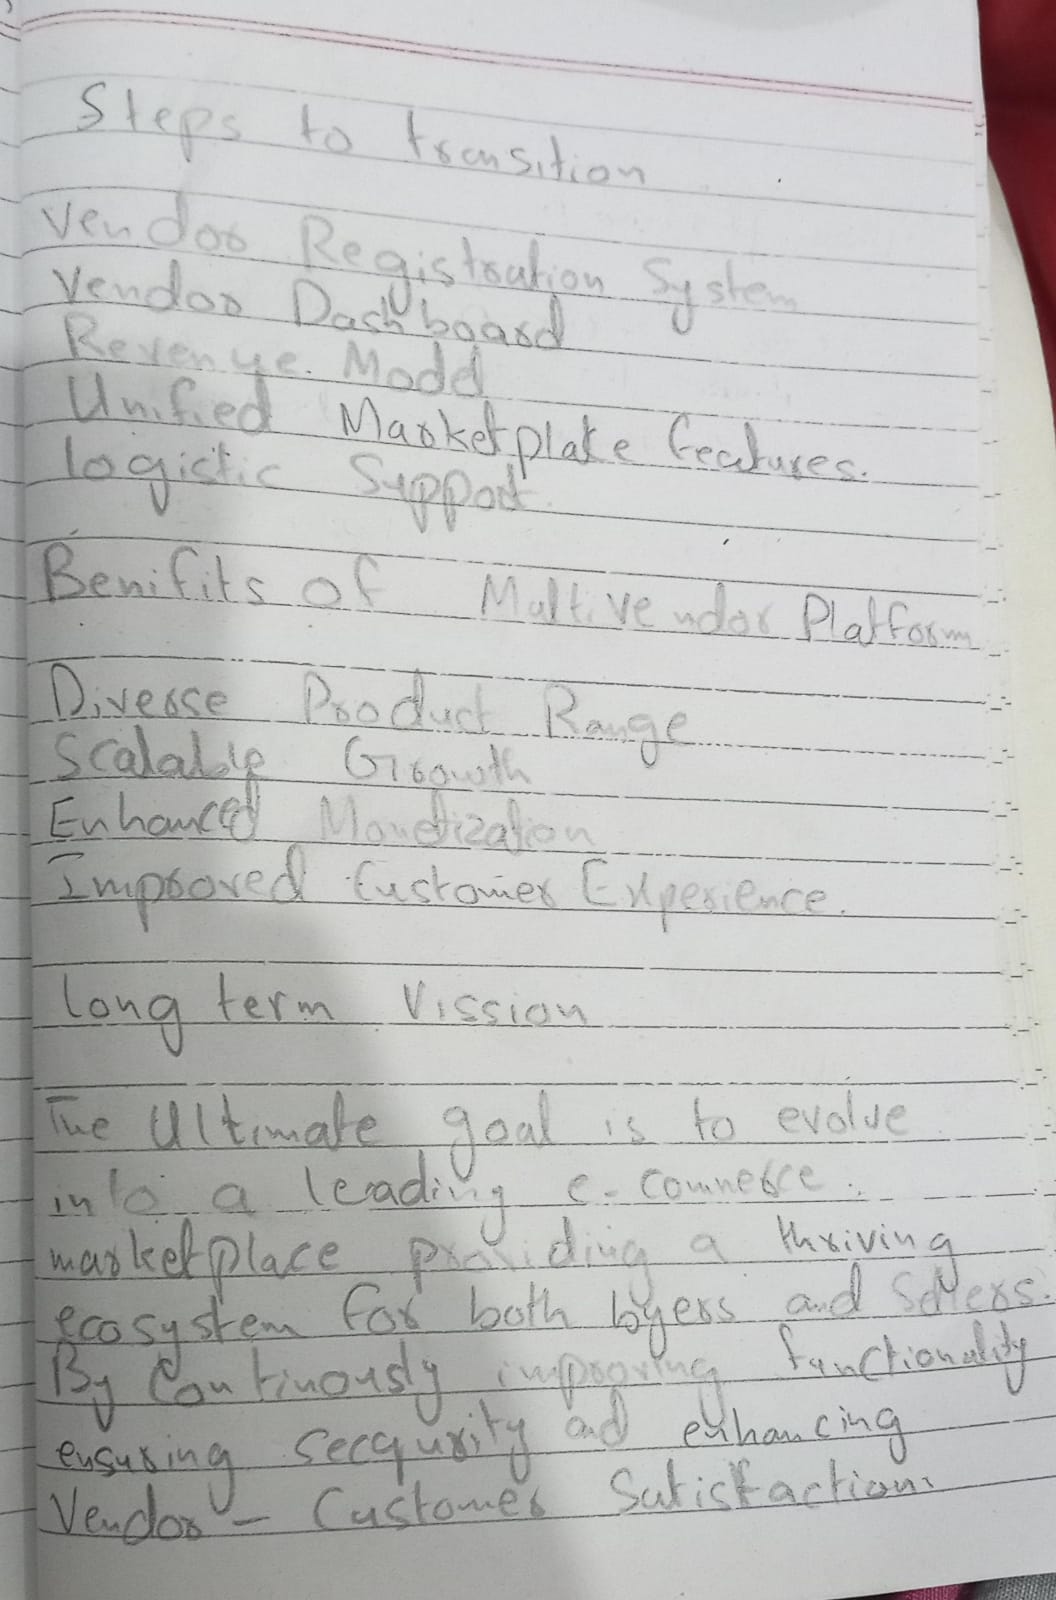 Steps to transition
Vendor Registration System
Vendor Dashboard
Revenue. Model
Unified Marketplake features.
logistic Support.
Benifits of Multivendor Platform
Diverse Product Range
Scalable Growth
Enhanced Monetization
Improved Customer Experience.
long term Vission
The Ultimate goal is to evolve
into a leading e-commerce.
marketplace providing a thriving
ecosystem for both byers and Sellers.
By Continuously improving functionality
ensuring secqurity ad enhancing
Vendor - Customer Satisfaction.